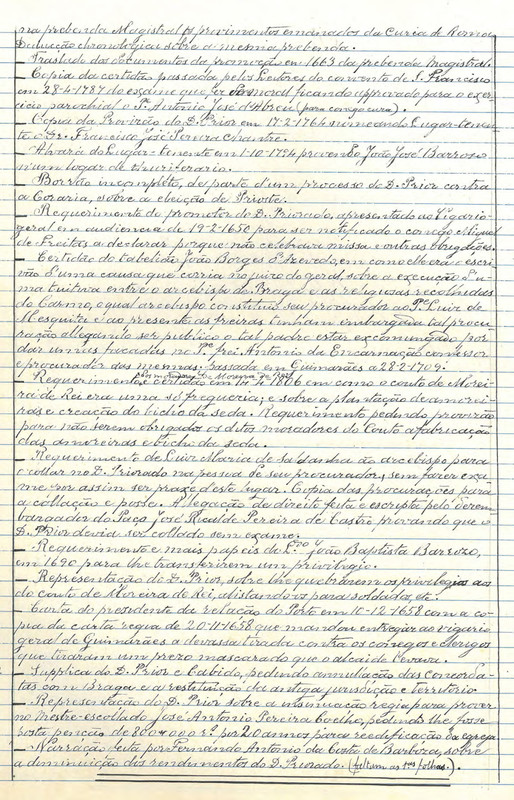 na prebenda Magistral os provimentos emanados da Curia de Roma.
Deducção chronologica sobre a mesma prebenda.
_ Traslado dos documentos da promoção em 1663 da prebenda Magistral.
_ Copia da certidão passada pelos Leitores do convento de S. Francisco
em 28-4-1787 do exame que fez de moral ficando approvado para o exer-
cicio parochial o P.e Antonio José d'Abreu (para conego cura).
_ Copia da Provisão do D. Prior em 17-2-1764 nomeando Lugar-tenen-
te o Dr. Francisco José Chantre.
_ Alvará do Lugar-tenente em 1-10-1754 provendo João José Barroso
n'um logar de thuriferario.
_ Borrão incompleto, de parte d'um processo do D. Prior contra
a Coraria, sobre a eleição de Prioste.
_ Requerimento do promotor do D. Priorado, apresentado ao Vigario
geral em audiencia de 19-2-1650 para ser notificado o conego Miguel
de Freitas a declarar porque não celebrava missa e outras obrigações.
_ Certidão do tabelião João Borges d'Azevedo, em como elle era escri-
vão d'uma causa que corria no juizo do geral sobre a execução d'u-
ma tuitiva entre o arcebispo de Braga e as religiosas recolhidas
do Carmo, o qual arcebispo constituiu seu procurador ao P.e Luiz de
Mesquita e ao presente as freiras tinham embargado tal procu-
ração allegando ser publico o tal padre estar excommungado por
dar umas facadas no P.e frei Antonio da Encarnação confessor
e procurador das mesmas. Passada em Guimarães a 28-2-1709.
_ Requerimento e certidão em 14-4-1806 em como o couto de Morei-
ra de Rei era uma só freguezia; e sobre a plantação de amorei-
ras e creação do bicho da seda. Requerimento pedindo provisão
para não serem obrigados os ditos moradores do Couto á fabricação
das amoreiras e bicho da seda.
_ Requerimento de Luiz Maria de Saldanha ao arcebispo para
o collar no D. Priorado na pessoa de seu procurador, sem fazer exa-
me por assim ser praxe d'este lugar. Copia das procurações para
a collação e posse. Allegação de direito feita e escripta pelo desem-
bargador do Paço José Ricalde Pereira de Castro, provando que o
D. Prior devia ser collado sem exame.
_ Requerimento e mais papeis do João Baptista Barrozo,
em 1690 para lhe transferirem um privilegio.
_ Representação do D. Prior, sobre lhe quebrarem os privilegios aos
do couto de Moreira de Rei, alistando-os para soldados, etc.
_ Carta do presidente da relação do Porto em 10-12-1658 com a co-
pia da carta regia de 20-11-1658 que mandou entregar ao vigario
geral de Guimarães a devassa tirada contra os conegos e Monges
que tiraram um prezo mascarado que o alcaide levava.
_ Supplica do D. Prior e Cabido, pedindo annullação das concorda-
tas com Braga e a restituição da antiga jurisdição e territorio.
_ Representação do D. Prior sobre a insinuação regia para prover
no Mestre-escollado José Antonio Pereira Coelho, pedindo lhe fosse
posta penção de 800$000 r.s por 20 annos para reedificação da egreja.
_ Narração feita por Fernando Antonio da Costa de Barboza, sobre
a diminuição dos rendimentos do D. Priorado. (faltam as 1.as folhas).